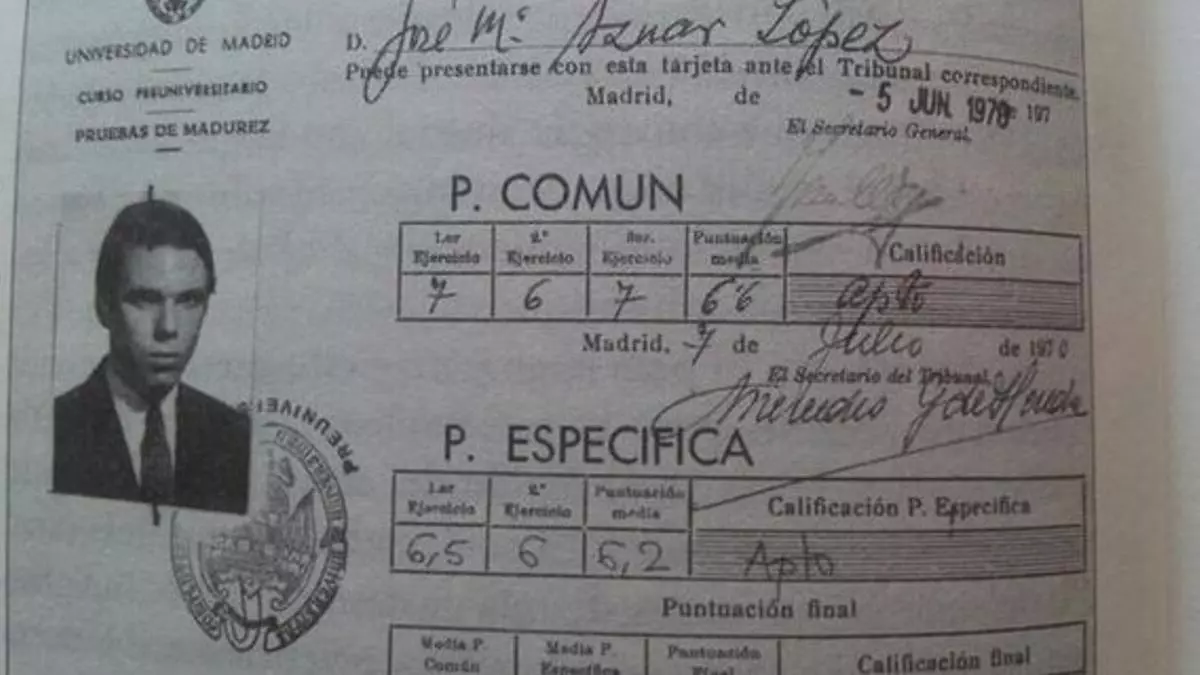 UNIVERSIDAD DE MADRID
CURSO PREUNIVERSITARIO
PRUEBAS DE MADUREZ
D. José Mª Aznar López
Puede presentarse con esta tarjeta ante el Tribunal correspondiente.
Madrid, de - 5 JUN. 1970 de 197
El Secretario General,
P. COMUN
1.er Ejercicio 2.º Ejercicio 3er. Ejercicio Puntuación media Calificación
7 6 7 6'6 apto
Madrid, 7 de Julio de 1970
El Secretario del Tribunal,
PREUNIVERSI
P. ESPECIFICA
1.er Ejercicio 2.º Ejercicio Puntuación media Calificación P. Específica
6,5 6 6,2 Apto
Puntuación final
Media P. Común Media P. Específica Puntuación Final Calificación final